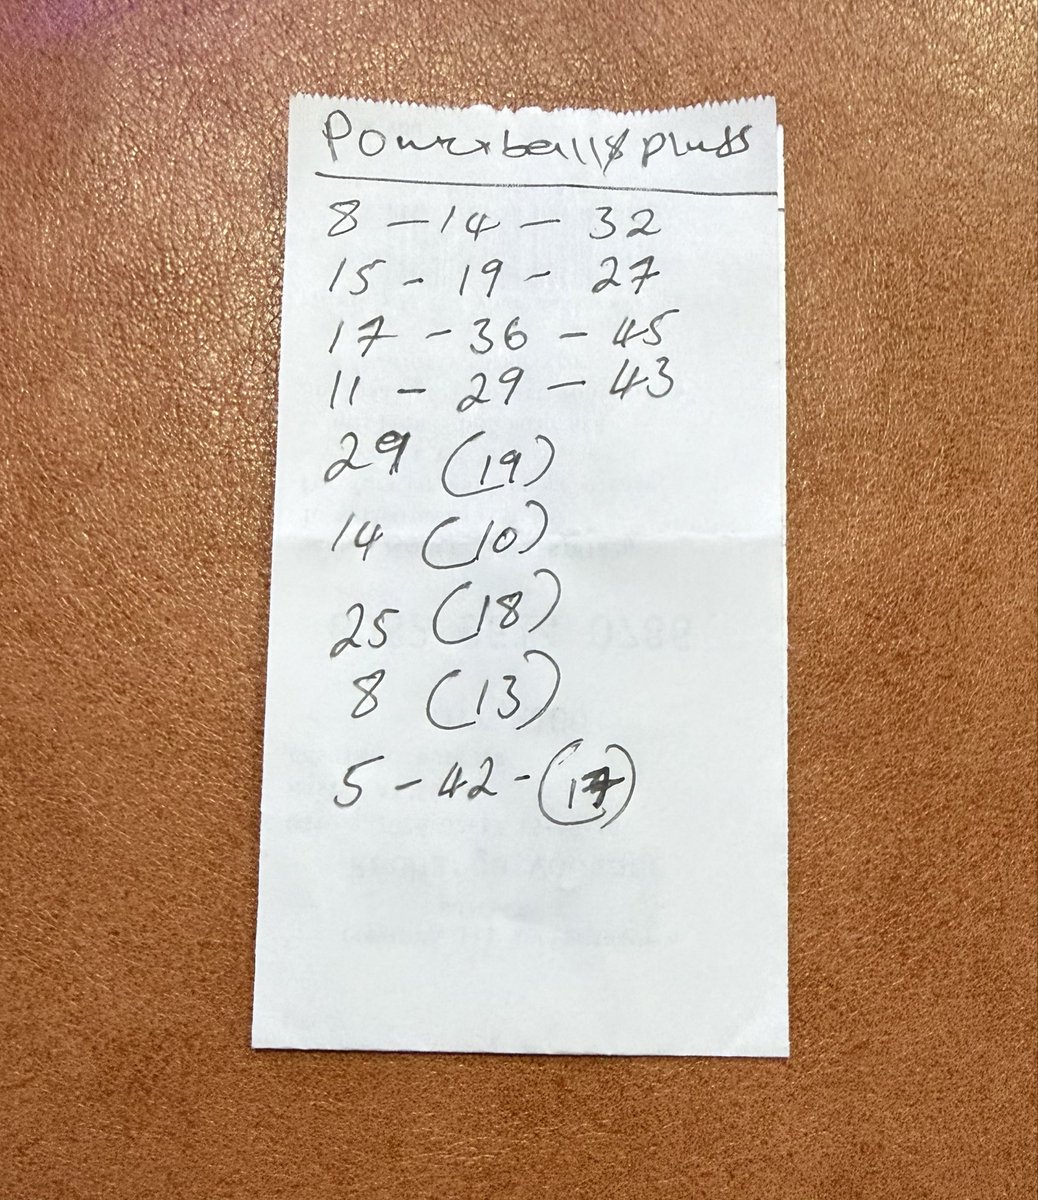 Powerball & pluss
8 - 14 - 32
15 - 19 - 27
17 - 36 - 45
11 - 29 - 43
29 (19)
14 (10)
25 (18)
8 (13)
5 - 42 - (17)